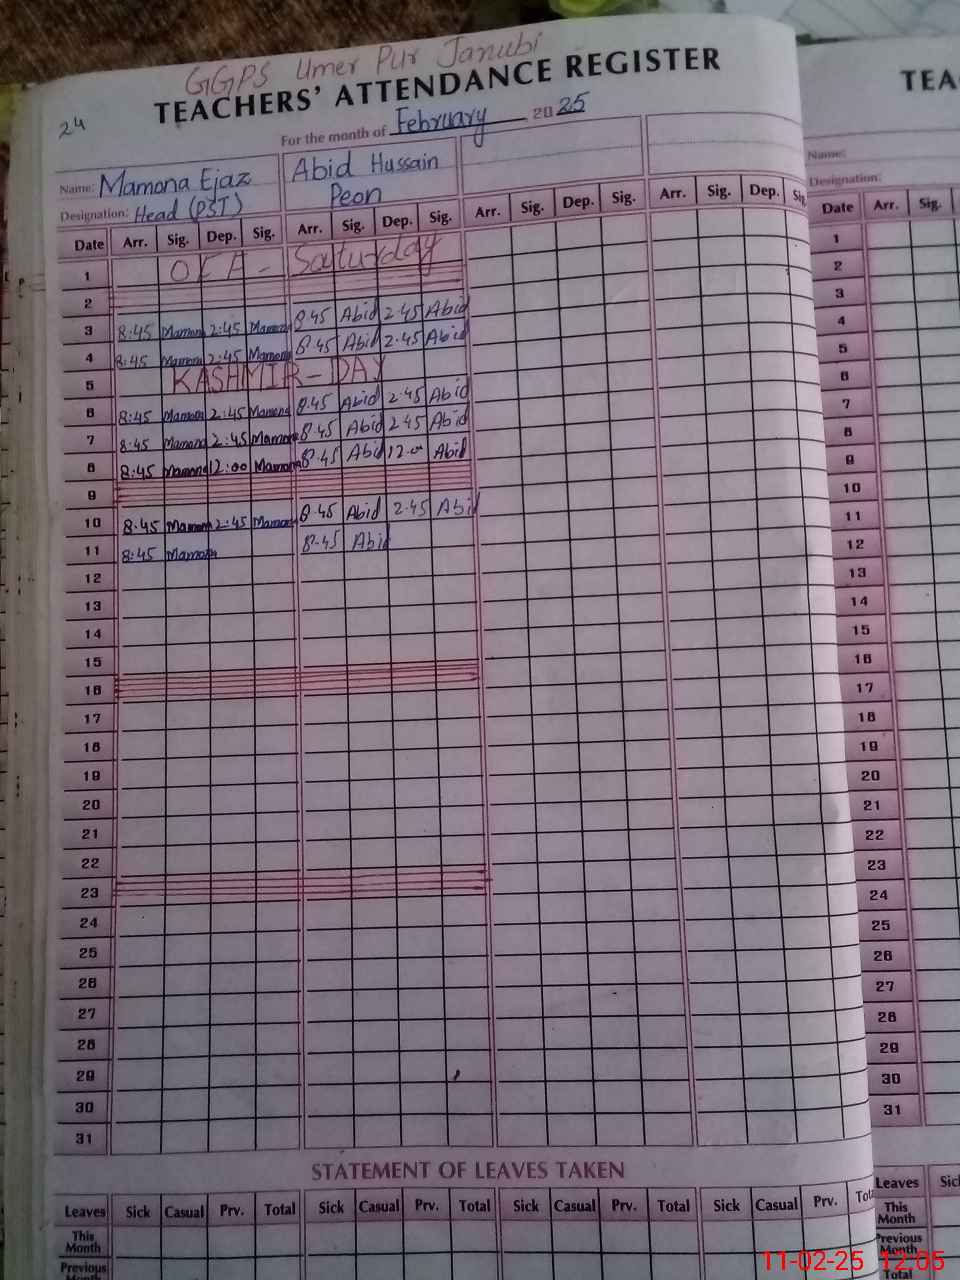 GGPS Umer Pur Janubi
TEACHERS' ATTENDANCE REGISTER
24
For the month of February 2025
Name: Mamona Ejaz Abid Hussain
Designation: Head (PST) Peon
Date Arr. Sig. Dep. Sig. Arr. Sig. Dep. Sig. Arr. Sig. Dep. Sig. Arr. Sig. Dep. Sig.
1 Saturday
2
3 8:45 Mamona 2:45 Mamona 8.45 Abid 2.45 Abid
4 8:45 Mamona 2:45 Mamona 8.45 Abid 2.45 Abid
5 KASHMIR-DAY
6 8:45 Mamona 2:45 Mamona 8.45 Abid 2.45 Abid
7 8:45 Mamona 2:45 Mamona 8.45 Abid 2.45 Abid
8 8:45 Mamona 12:00 Mamona 8.45 Abid 12.00 Abid
9
10 8:45 Mamona 2:45 Mamona 8.45 Abid 2.45 Abid
11 8:45 Mamona 8.45 Abid
12
13
14
15
16
17
18
19
20
21
22
23
24
25
26
27
28
29
30
31
STATEMENT OF LEAVES TAKEN
Leaves Sick Casual Prv. Total Sick Casual Prv. Total Sick Casual Prv. Total Sick Casual Prv. Tota
This
Month
Previous
Month
TEA
Name:
Designation:
Date Arr. Sig.
1
2
3
4
5
6
7
8
9
10
11
12
13
14
15
16
17
18
19
20
21
22
23
24
25
26
27
28
29
30
31
Leaves Sic
This
Month
Previous
Month
Total
11-02-25 12:05